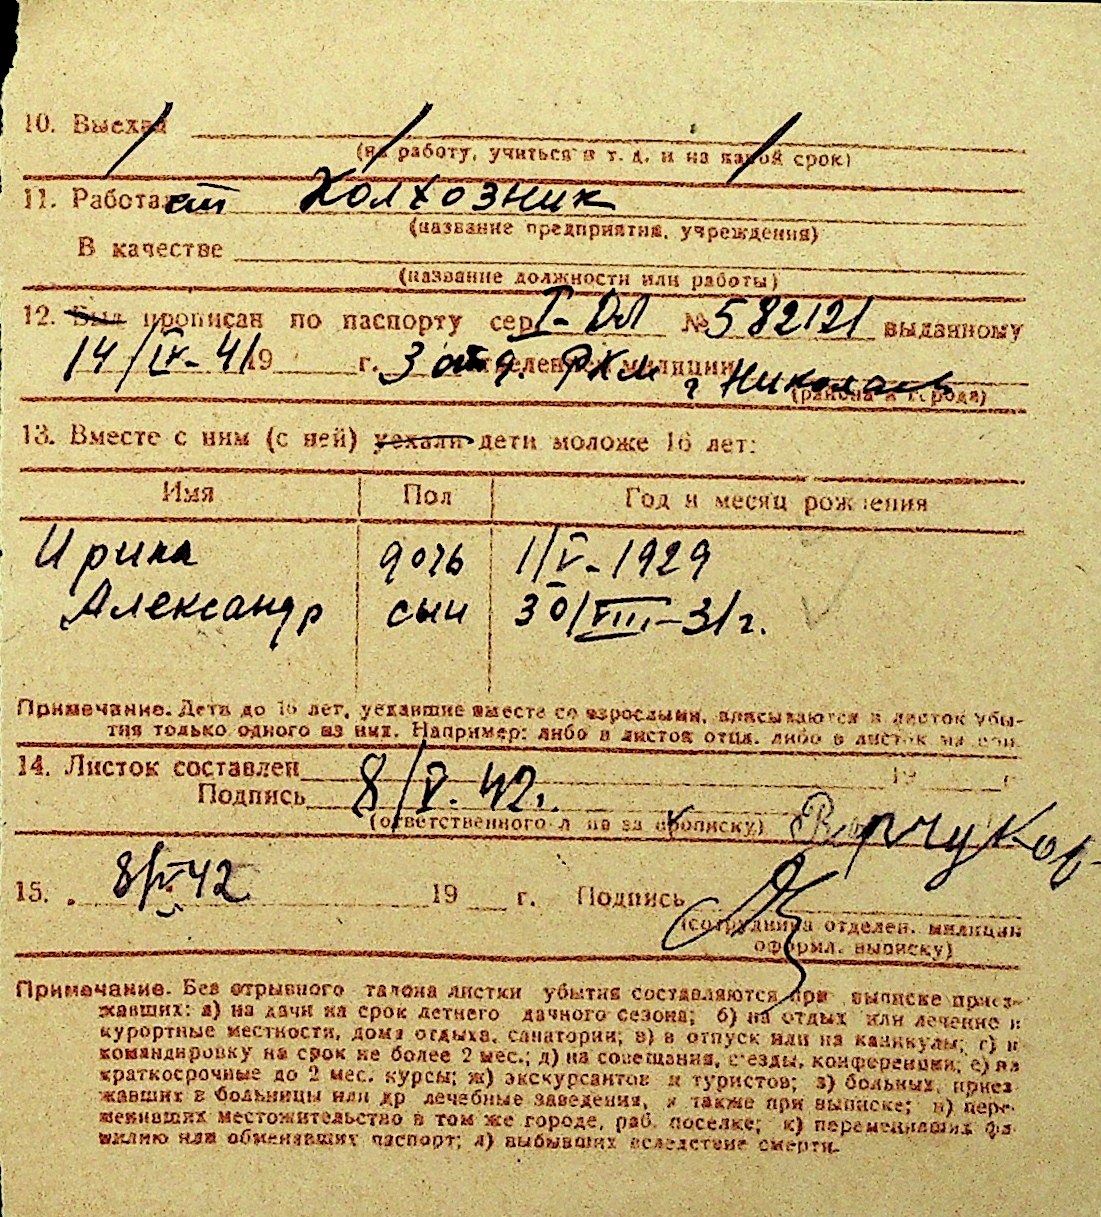 10. Выехал
(на работу, учиться и т. д. и на какой срок)
11. Работает Колхозник
(название предприятия, учреждения)
В качестве
(название должности или работы)
12. Был прописан по паспорту сер. I-ДЛ № 582121 выданному
14/IV-41 19 г. 3 отд. отделением милиции РКМ г Николаев
(района и города)
13. Вместе с ним (с ней) уехали дети моложе 16 лет:
Имя Пол Год и месяц рождения
Ирина дочь 1/V-1929
Александр сын 30/VIII-31г.
Примечание. Дети до 16 лет, уехавшие вместе со взрослыми, вписываются в листок убы-
тия только одного из них. Например: либо в листок отца, либо в листок матери.
14. Листок составлен 8/V. 42. 19 г.
Подпись
(ответственного л-ца за прописку)
15. 8/V 42 19 г. Подпись
(сотрудника отделен. милиции
оформл. выписку)
Примечание. Без отрывного талона листки убытия составляются при выписке приез-
жавших: а) на дачи на срок летнего дачного сезона; б) на отдых или лечение в
курортные местности, дома отдыха, санатории; в) в отпуск или на каникулы; г) в
командировку на срок не более 2 мес.; д) на совещания, съезды, конференции; е) на
краткосрочные до 2 мес. курсы; ж) экскурсантов и туристов; з) больных, приез-
жавших в больницы или др лечебные заведения, а также при выписке; и) пере-
менивших местожительство в том же городе, раб. поселке; к) переменивших фа-
милию или обменявших паспорт; л) выбывших вследствие смерти.